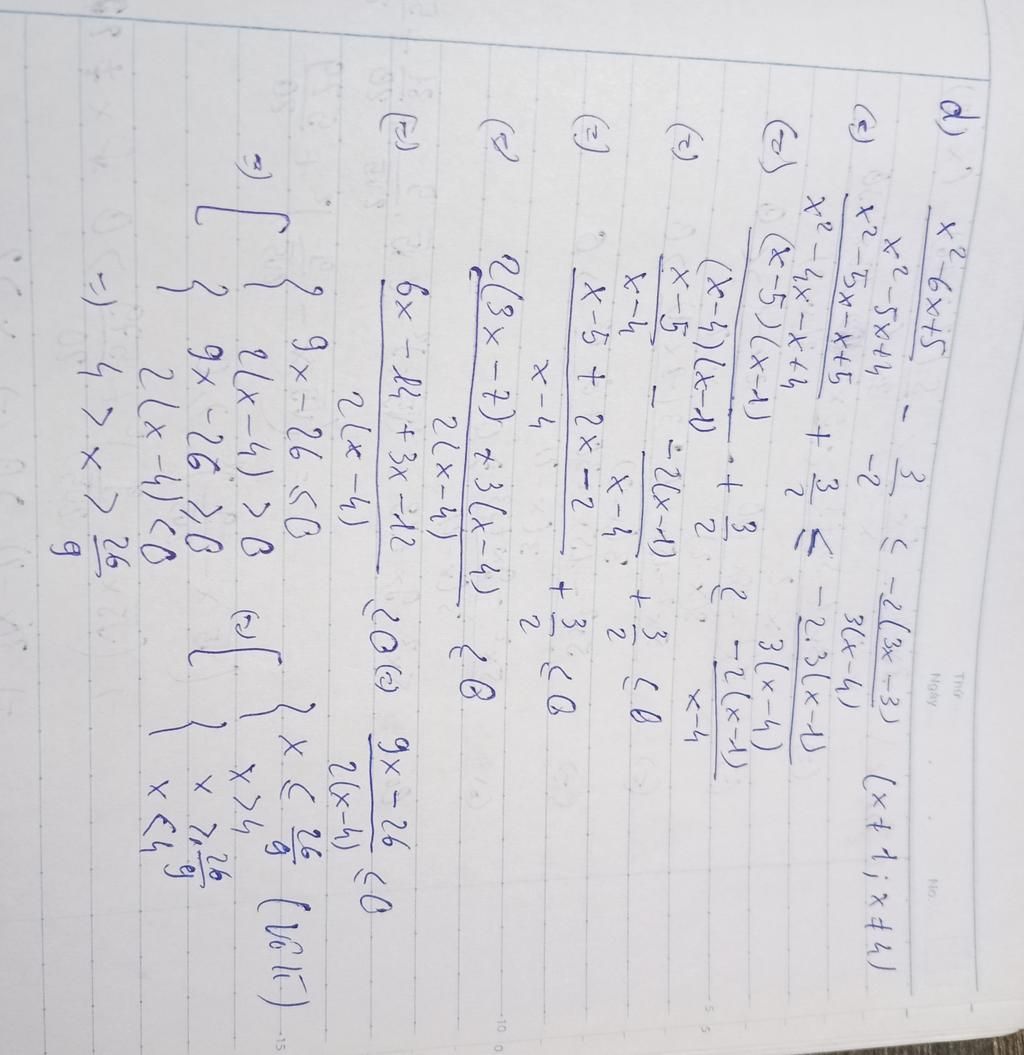 Thứ
Ngày
No.
d) x² - 6x + 5 / x² - 5x + 4 - 3 / -2 ≤ -2(3x - 3) / 3(x - 4) (x ≠ 1; x ≠ 4)
(=) x² - 5x - x + 5 / x² - 4x - x + 4 + 3/2 ≤ - 2.3(x - 1) / 3(x - 4)
(=) (x - 5)(x - 1) / (x - 4)(x - 1) + 3/2 ≤ -2(x - 1) / x - 4
(=) x - 5 / x - 4 - -2(x - 1) / x - 4 + 3/2 ≤ 0
(=) x - 5 + 2x - 2 / x - 4 + 3/2 ≤ 0
(=) 2(3x - 7) + 3(x - 4) / 2(x - 4) ≤ 0
(=) 6x - 14 + 3x - 12 / 2(x - 4) ≤ 0 (=) 9x - 26 / 2(x - 4) ≤ 0
=) [ { 9x - 26 ≤ 0
2(x - 4) > 0
{ 9x - 26 ≥ 0
2(x - 4) < 0
(=) [ { x ≤ 26/9
x > 4
(Vô lí)
{ x ≥ 26/9
x < 4
=) 4 > x > 26/9
5
10
15